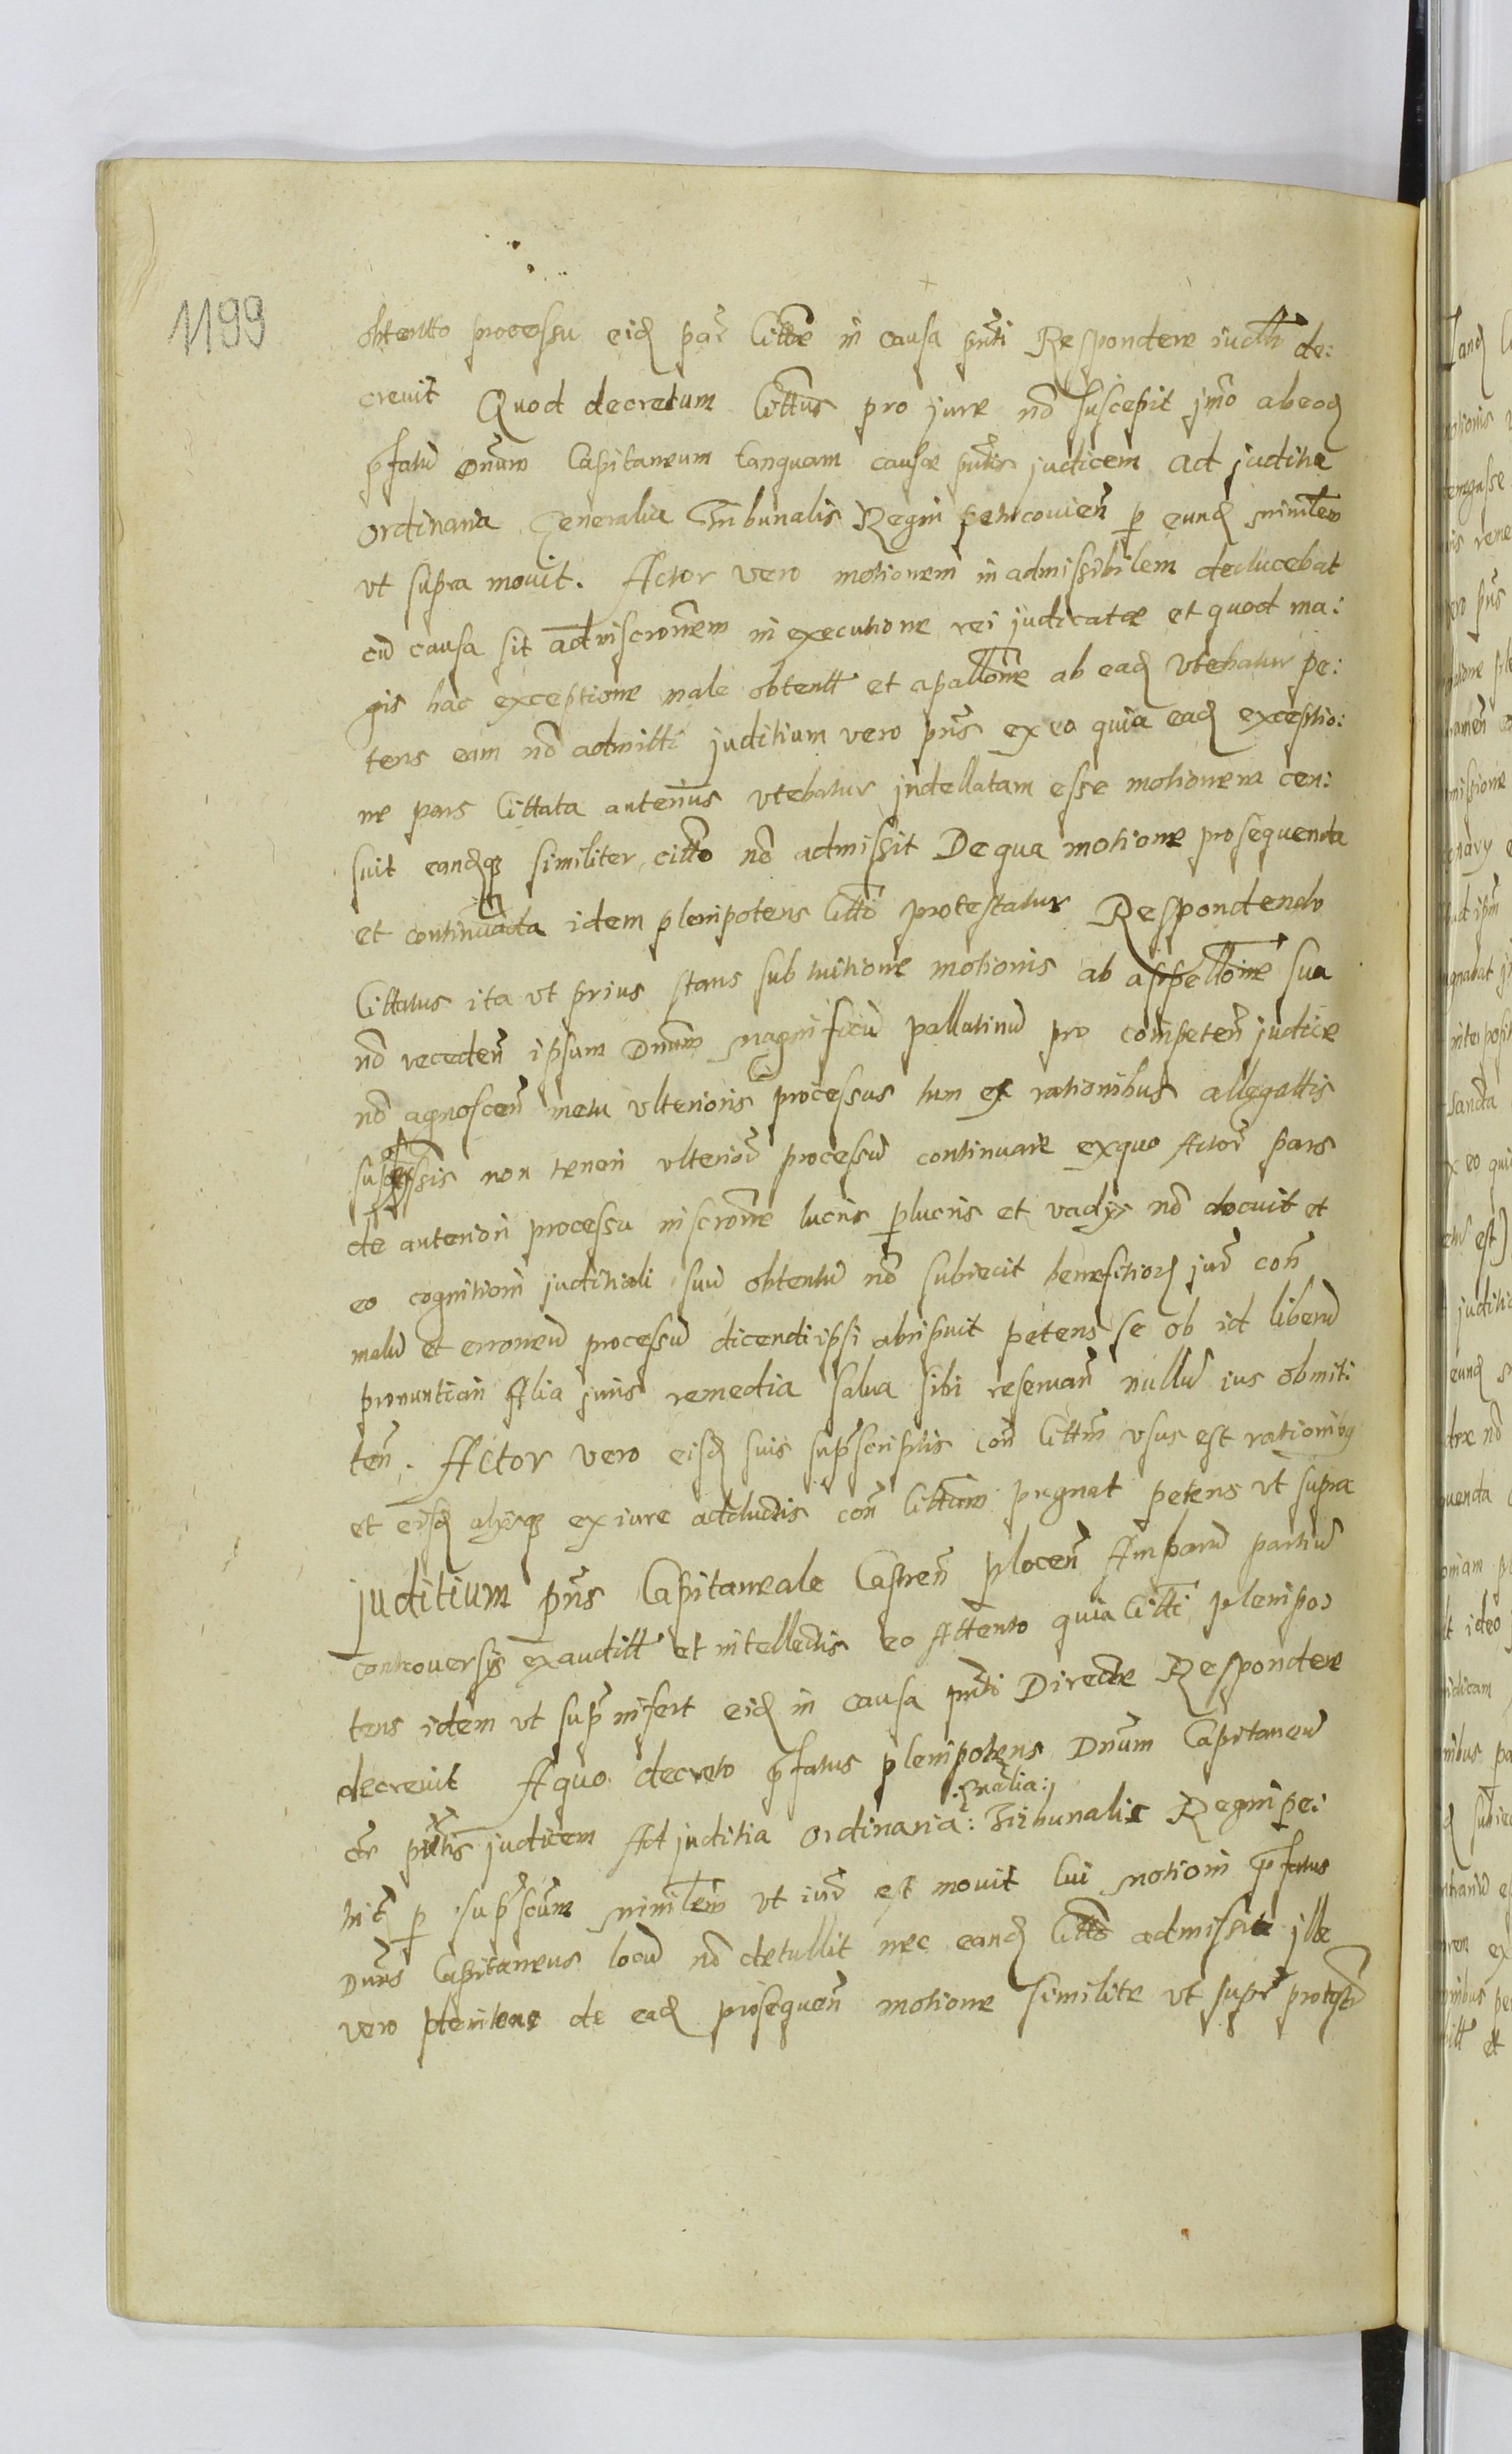 1199
obtentto processu eid par Cittae in causa pnti Respondere iudlr de:
crevit Quod decretum Cittus pro jure no suscepit jmo ab eod
pfatu dnum Capitaneum tanquam causae pntis judicem ad juditia
ordinaria Generalia Tribunalis Regni petricovien p eund ministlem
vt supra movit. Actor vero motionem in admissibilem deducebat
cu causa sit ad inscronem in executione rei judicatae et quod ma:
gis hac exceptione male obtentt et apallone ab ead vtebatur pe:
tens eam no admitti juditium vero pns ex eo quia ead exceptio:
ne pars Cittata anterius vtebatur jndellatam esse motionem cen:
suit eandq similiter citto no admissit De qua motione prosequenda
et continuada idem plenipotens Citti protestatur Respondendo
Cittatus ita vt prius stans sub tuitione motionis ab appellone sua
no receden ipsum Dnum Magnificu pallatinu pro competen judice
no agnoscen metu vlterioris processus tum ex rationibus allegattis
non teneri vlterioru processu continuare ex quo Actor pars
de anteriori processu inscrone lucris plucris et vadys no docuit et
eo cognitioni juditiali suu obtentu no subiecit benefitioq jur con
malu et erroneu processu dicendi ipsi abripuit petens se ob id liberu
pronuntiari Alia juris remedia salua sibi reseruan nullu ius obmiti
ten. Actor vero eisd suis suprscriptis con Cittum vsus est rationibq
et eisd alysq ex iure adductis con Cittum pugnat petens vt supra
juditium pns Capitaneale Castren plocen Ambaru partiu
controuersys exauditt et intellectis eo Attento quia Citti plenipo:
tens idem vt supr infert eid in causa pnti Directe Respondere
decreuit A quo decreto pfatus plenipotens Dnum Capitaneu
ce pntis judicem Ad juditia ordinaria: Gnralia: Tribunalis Regni pe:
tric p suprscum ministlem vt iur est mouit Cui motioni pfatus
Dnus Capitaneus locu no detullit nec eand Citto admissit jlle
vero plenitens de ead prosequen motione similite vt supr protestr